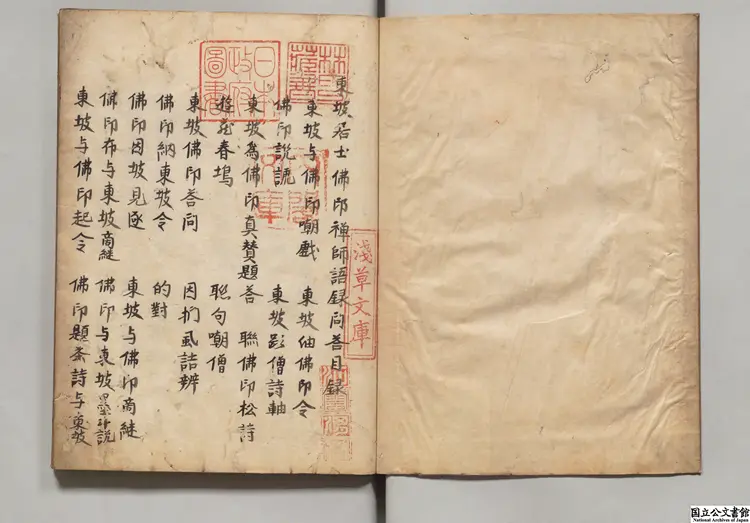 東坡居士佛印禅師語録问荅目録
東坡与佛印嘲戯　東坡紬佛印令
佛印説謊　東坡彭僧詩軸
東坡為佛印真賛題荅　聯佛印松詩
遊花春塢　聡句嘲僧
東坡佛印荅问　因捫虱詰辨
佛印納東坡令　的對
佛印因坡見逐　東坡与佛印商継
佛印布与東坡商継　佛印与東坡墨斗説
東坡与佛印起令　佛印題茶詩与東坡
日本政府圖書
林氏藏書
淺草文庫
国立公文書館
National Archives of Japan